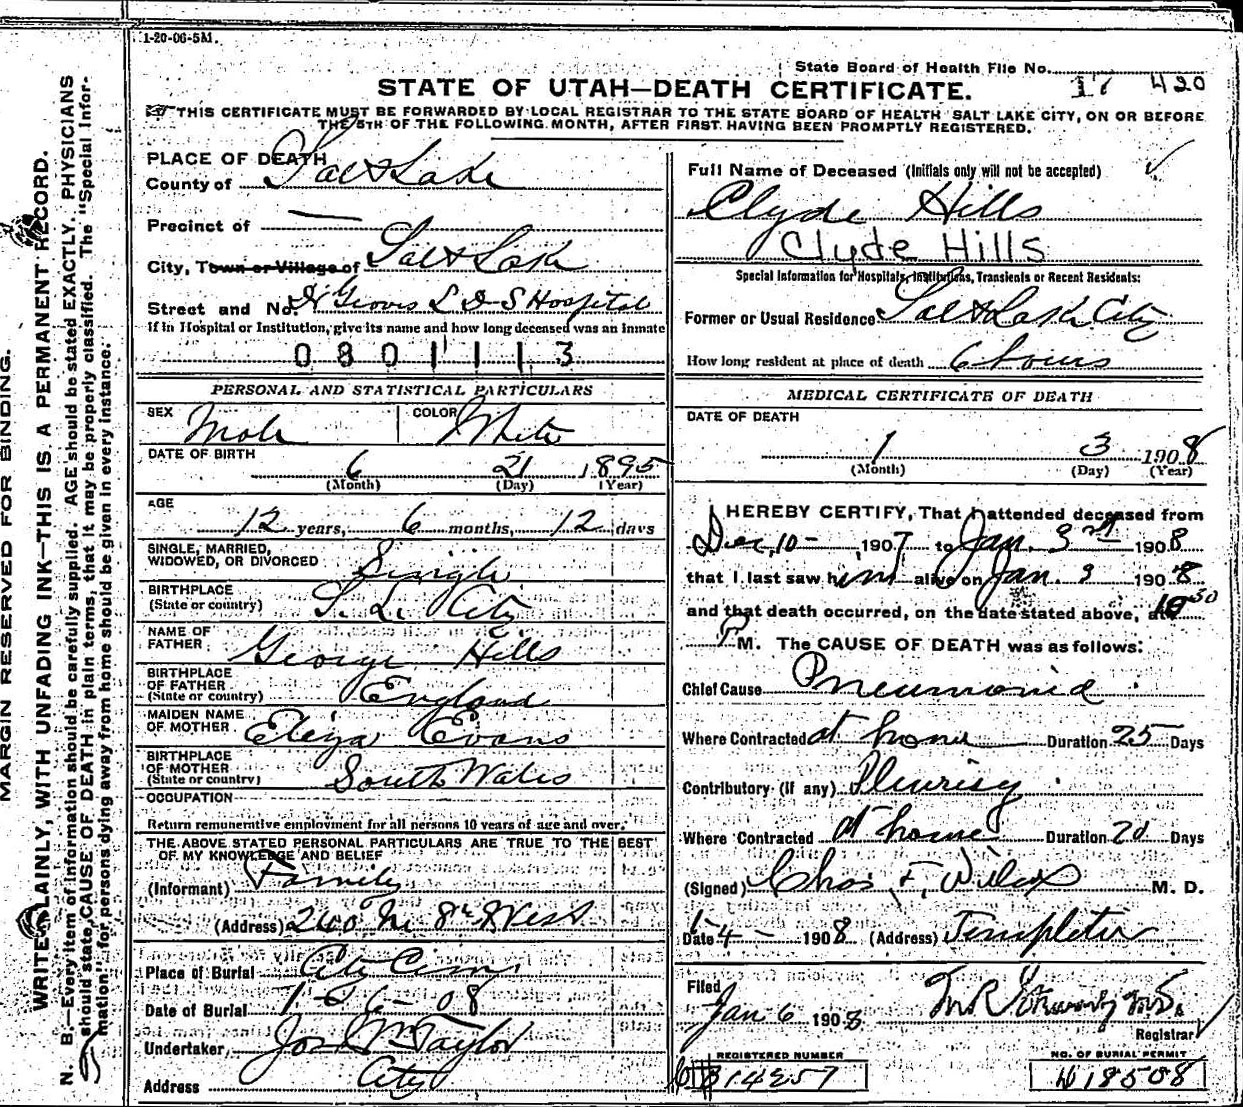 1-20-06-5M.
State Board of Health File No.
17 420
STATE OF UTAH—DEATH CERTIFICATE.
THIS CERTIFICATE MUST BE FORWARDED BY LOCAL REGISTRAR TO THE STATE BOARD OF HEALTH SALT LAKE CITY, ON OR BEFORE
THE 5TH OF THE FOLLOWING MONTH, AFTER FIRST HAVING BEEN PROMPTLY REGISTERED.
MARGIN RESERVED FOR BINDING.
WRITE PLAINLY, WITH UNFADING INK—THIS IS A PERMANENT RECORD.
N. B.—Every item of information should be carefully supplied. AGE should be stated EXACTLY. PHYSICIANS
should state CAUSE OF DEATH in plain terms, that it may be properly classified. The "Special Infor-
mation" for persons dying away from home should be given in every instance.
PLACE OF DEATH
County of Salt Lake
Precinct of —
City, Town or Village of Salt Lake
Street and No. Groves L D S Hospital
If in Hospital or Institution, give its name and how long deceased was an inmate
0801113
PERSONAL AND STATISTICAL PARTICULARS
SEX Male COLOR White
DATE OF BIRTH
6 21 1895
(Month) (Day) (Year)
AGE
12 years, 6 months, 12 days
SINGLE, MARRIED,
WIDOWED, OR DIVORCED Single
BIRTHPLACE
(State or country) S. L. City
NAME OF
FATHER George Hills
BIRTHPLACE
OF FATHER
(State or country) England
MAIDEN NAME
OF MOTHER Eliza Evans
BIRTHPLACE
OF MOTHER
(State or country) South Wales
OCCUPATION
Return remunerative employment for all persons 10 years of age and over.
THE ABOVE STATED PERSONAL PARTICULARS ARE TRUE TO THE BEST
OF MY KNOWLEDGE AND BELIEF
(Informant) Family
(Address) 240 N. 8th West
Place of Burial City Cem.
Date of Burial 1-6-08
Undertaker, Jos Wm Taylor
Address City
Full Name of Deceased (Initials only will not be accepted)
Clyde Hills
Clyde Hills
Special Information for Hospitals, Institutions, Transients or Recent Residents:
Former or Usual Residence Salt Lake City
How long resident at place of death 6 hours
MEDICAL CERTIFICATE OF DEATH
DATE OF DEATH
1 3 1908
(Month) (Day) (Year)
I HEREBY CERTIFY, That I attended deceased from
Dec, 10 - 1907 to Jan. 3rd 1908
that I last saw him alive on Jan. 3 1908
and that death occurred, on the date stated above, at 10 30
P M. The CAUSE OF DEATH was as follows:
Chief Cause Pneumonia
Where Contracted at home Duration 25 Days
Contributory (If any) Pleurisy
Where Contracted at home Duration 20 Days
(Signed) Chas. F. Wilcox M. D.
Date 1-4- 1908 (Address) Templeton
Filed
Jan 6 1908
Registrar
REGISTERED NUMBER
NO. OF BURIAL PERMIT
H 18508